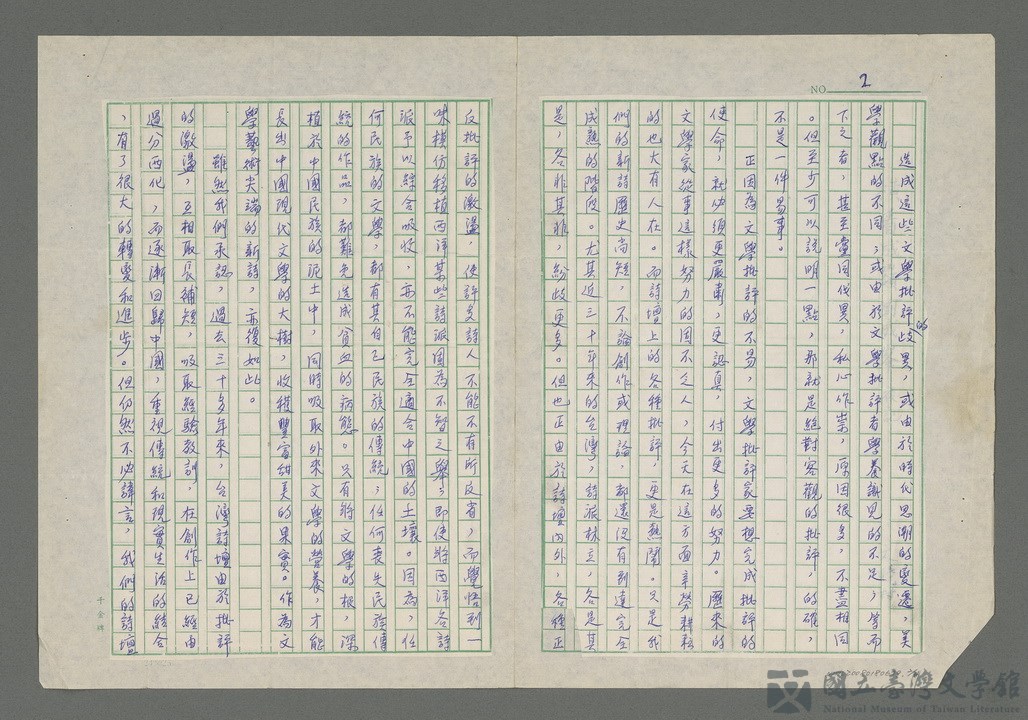 NO. 2
造成這些文學批評的歧異,或由於時代思潮的變遷,美
學觀點的不同;或由於文學批評者學養識見的不足;等而
下之者,甚至黨同伐異,私心作祟,原因很多,不盡相同
。但至少可以說明一點,那就是絕對客觀的批評,的確,
不是一件易事。
正因為文學批評的不易,文學批評家要想完成批評的
使命,就必須更嚴肅,更認真,付出更多的努力。歷來的
文學家從事這樣努力的固不乏人,今天在這方面辛勞耕耘
的也大有人在。而詩壇上的各種批評,更是熱鬧。又是我
們的新詩歷史尚短,不論創作或理論,都還沒有到達完全
成熟的階段。尤其近三十年來的台灣,詩派林立,各是其
是,各非其非,紛歧更多。但也正由於詩壇內外,各種正
反批評的激盪,使許多詩人不能不有所反省,而覺悟到一
味模仿移植西洋某些詩派固為不智之舉;即使將西洋各詩
派予以綜合吸收,亦不能完全適合中國的土壤。因為,任
何民族的文學,都有其自己民族的傳統;任何喪失民族傳
統的作品,都難免造成貧血的病態。只有將文學的根,深
植於中國民族的泥土中,同時吸取外來文學的營養,才能
長出中國現代文學的大樹,收穫豐富甜美的果實。作為文
學藝術尖端的新詩,亦復如此。
雖然我們承認,過去三十多年來,台灣詩壇由於批評
的激盪,互相取長補短,吸取經驗教訓,在創作上已經由
過分西化,而逐漸回歸中國,重視傳統和現實生活的結合
,有了很大的轉變和進步。但仍然不必諱言,我們的詩壇
國立臺灣文學館
National Museum of Taiwan Literature